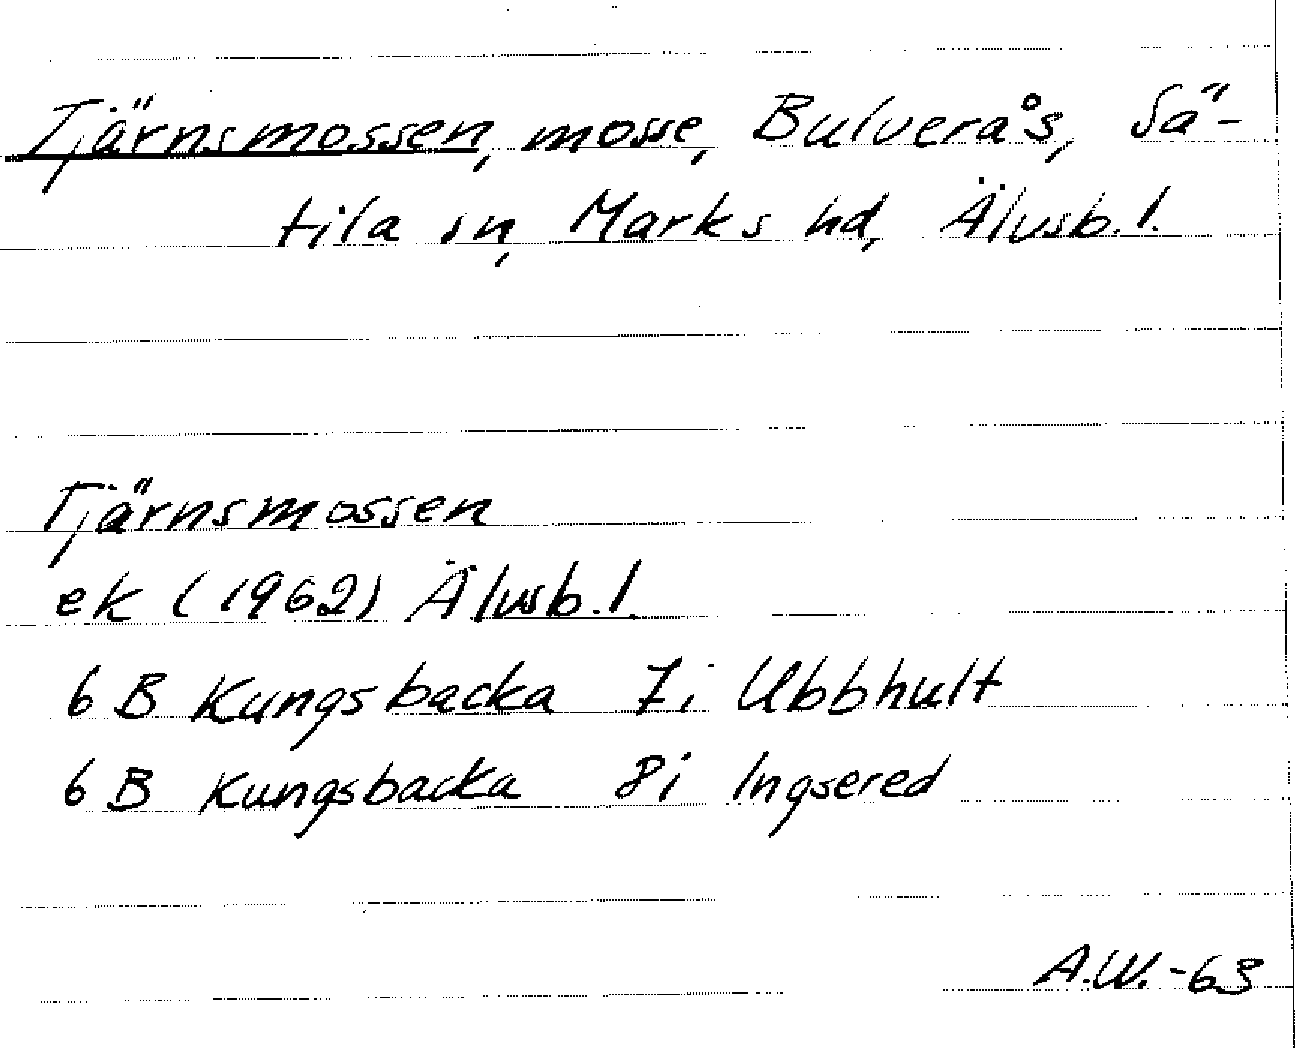 Tjärnsmossen, mosse, Bulverås, Sä-
tila sn, Marks hd, Älvsb. l.
Tjärnsmossen
ek (1962) Älvsb. l.
6 B Kungsbacka 7i Ubbhult
6 B Kungsbacka 8i Ingsered
A.W.-63